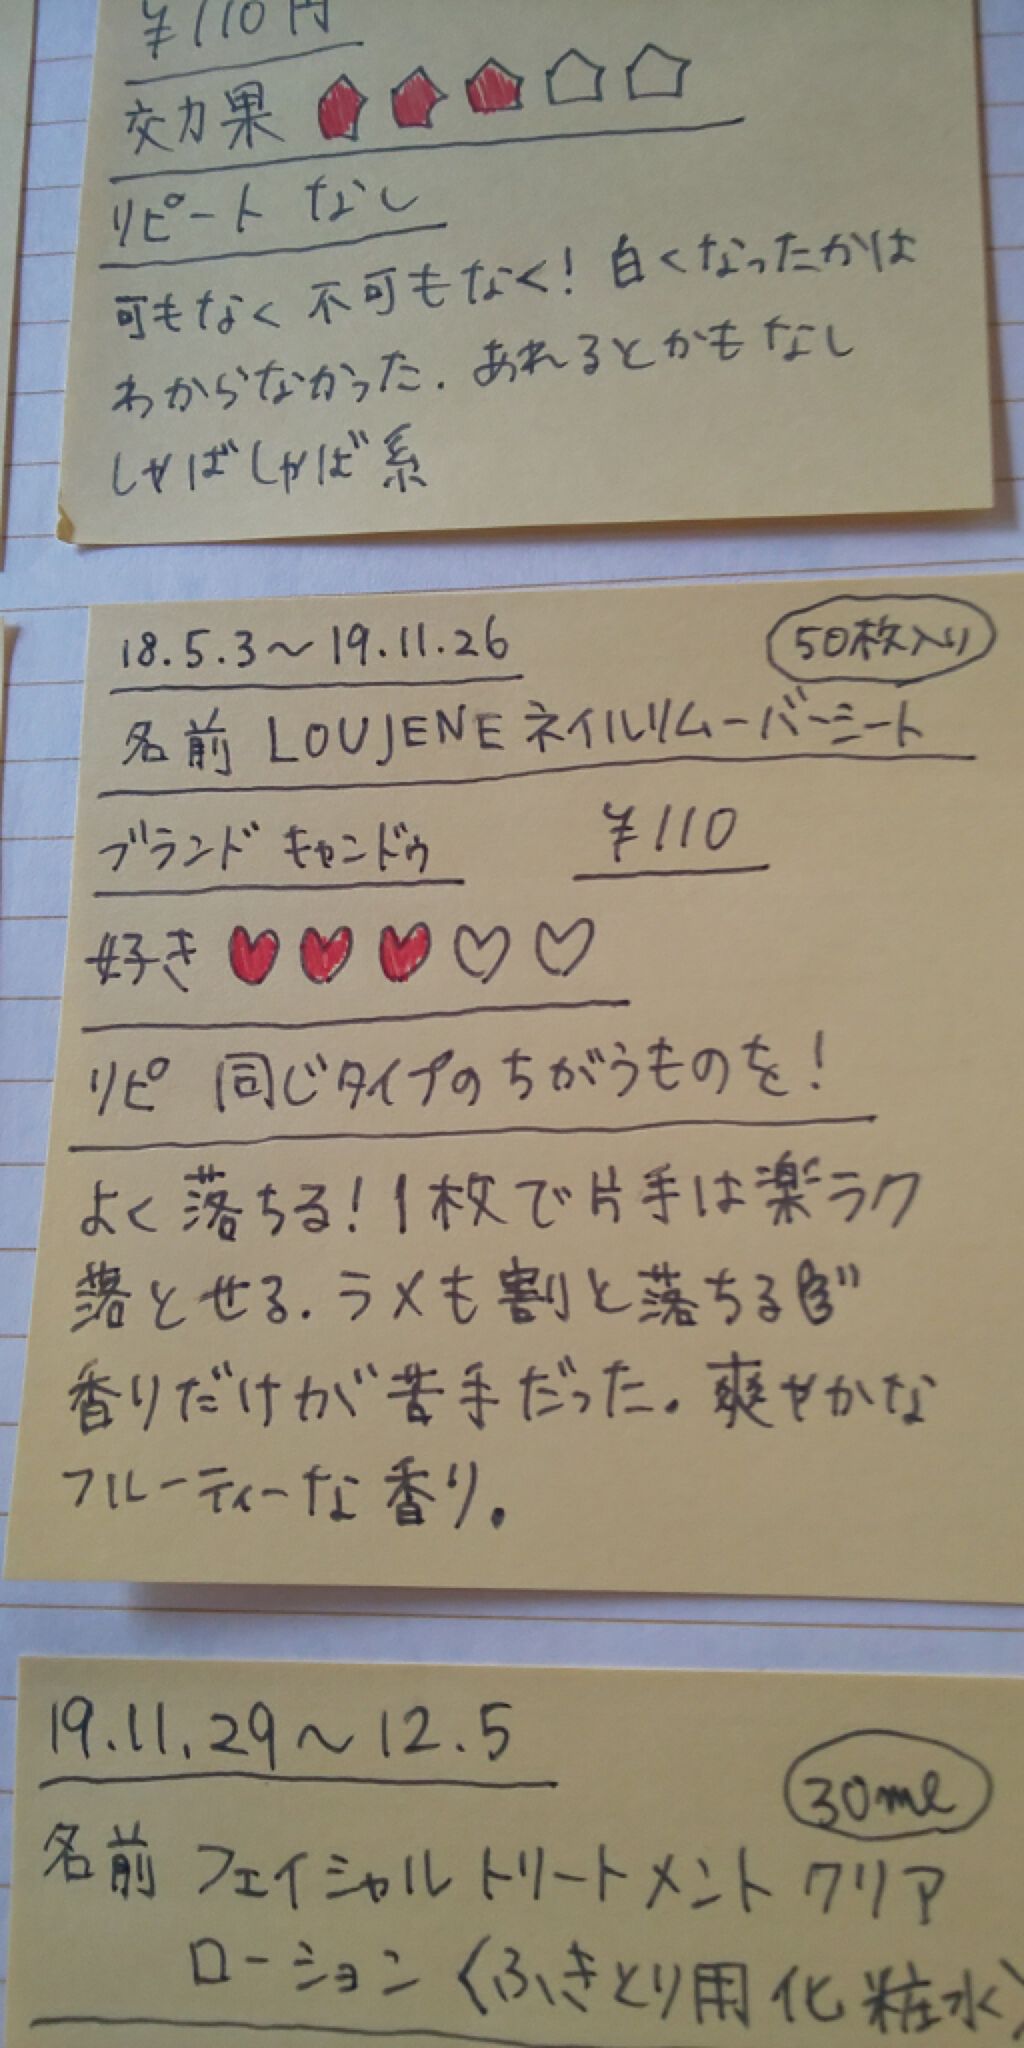 ¥110円
効果
リピート なし
可もなく不可もなく！白くなったかは
わからなかった．あれるとかもなし
しゃばしゃば系
18.5.3～19.11.26
50枚入り
名前 LOUJENE ネイルリムーバーシート
ブランド キャンドゥ ¥110
好き
リピ 同じタイプのちがうものを！
よく落ちる！1枚で片手は楽ラク
落とせる．ラメも割と落ちる
香りだけが苦手だった。爽やかな
フルーティーな香り。
19.11.29～12.5
30ml
名前 フェイシャル トリートメント クリア
ローション〈ふきとり用化粧水〉